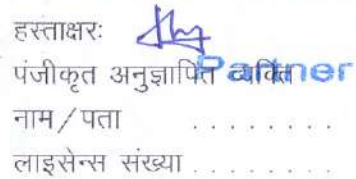 हस्ताक्षरः
पंजीकृत अनुज्ञापित व्यक्ति Partner
नाम/पता ........
लाइसेन्स संख्या ........